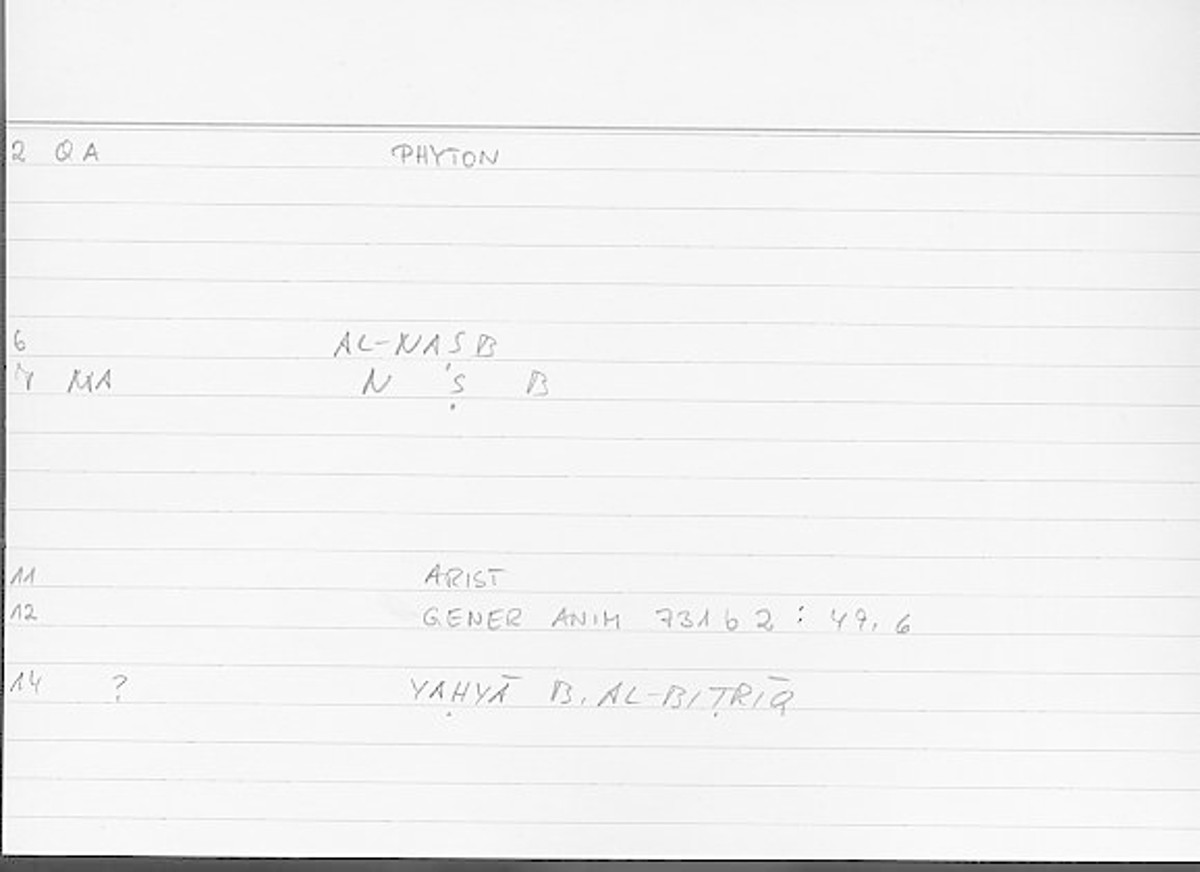 2 QA PHYTON
6 AL-NAṢB
7 MA N Ṣ B
11 ARIST
12 GENER ANIM 731 b 2 : 49, 6
14 ? YAḤYĀ B. AL-BIṬRĪQ